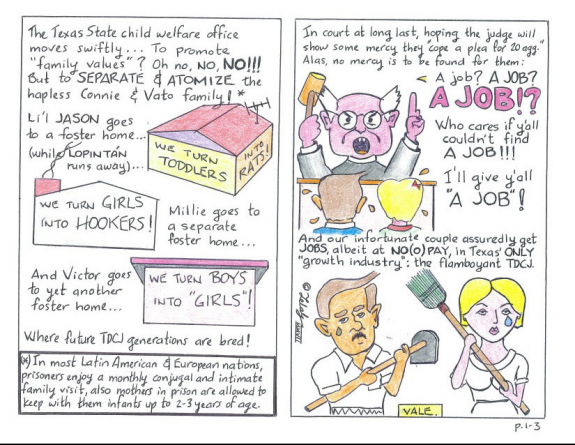 The Texas State child welfare office
moves swiftly... To promote
"family values"? Oh no, NO, NO!!!
But to SEPARATE & ATOMIZE the
hapless Connie & Vato family!*
Li'l JASON goes
to a foster home...
(while LOPINTÁN
runs away)...
WE TURN
TODDLERS
INTO
RATS!
WE TURN GIRLS
INTO HOOKERS!
Millie goes to
a separate
foster home...
And Victor goes
to yet another
foster home...
WE TURN BOYS
INTO "GIRLS"!
Where future TDCJ generations are bred!
(*) In most Latin American & European nations,
prisoners enjoy a monthly conjugal and intimate
family visit, also mothers in prison are allowed to
keep with them infants up to 2-3 years of age.
In court at long last, hoping the judge will
show some mercy they "cope a plea for 20 agg."
Alas, no mercy is to be found for them:
A job? A JOB?
A JOB!?
Who cares if y'all
couldn't find
A JOB!!!
I'll give y'all
"A JOB"!
And our infortunate couple assuredly get
JOBS, albeit at NO(0) PAY, in Texas' ONLY
"growth industry": the flamboyant TDCJ.
©
VALE.
p.1-3